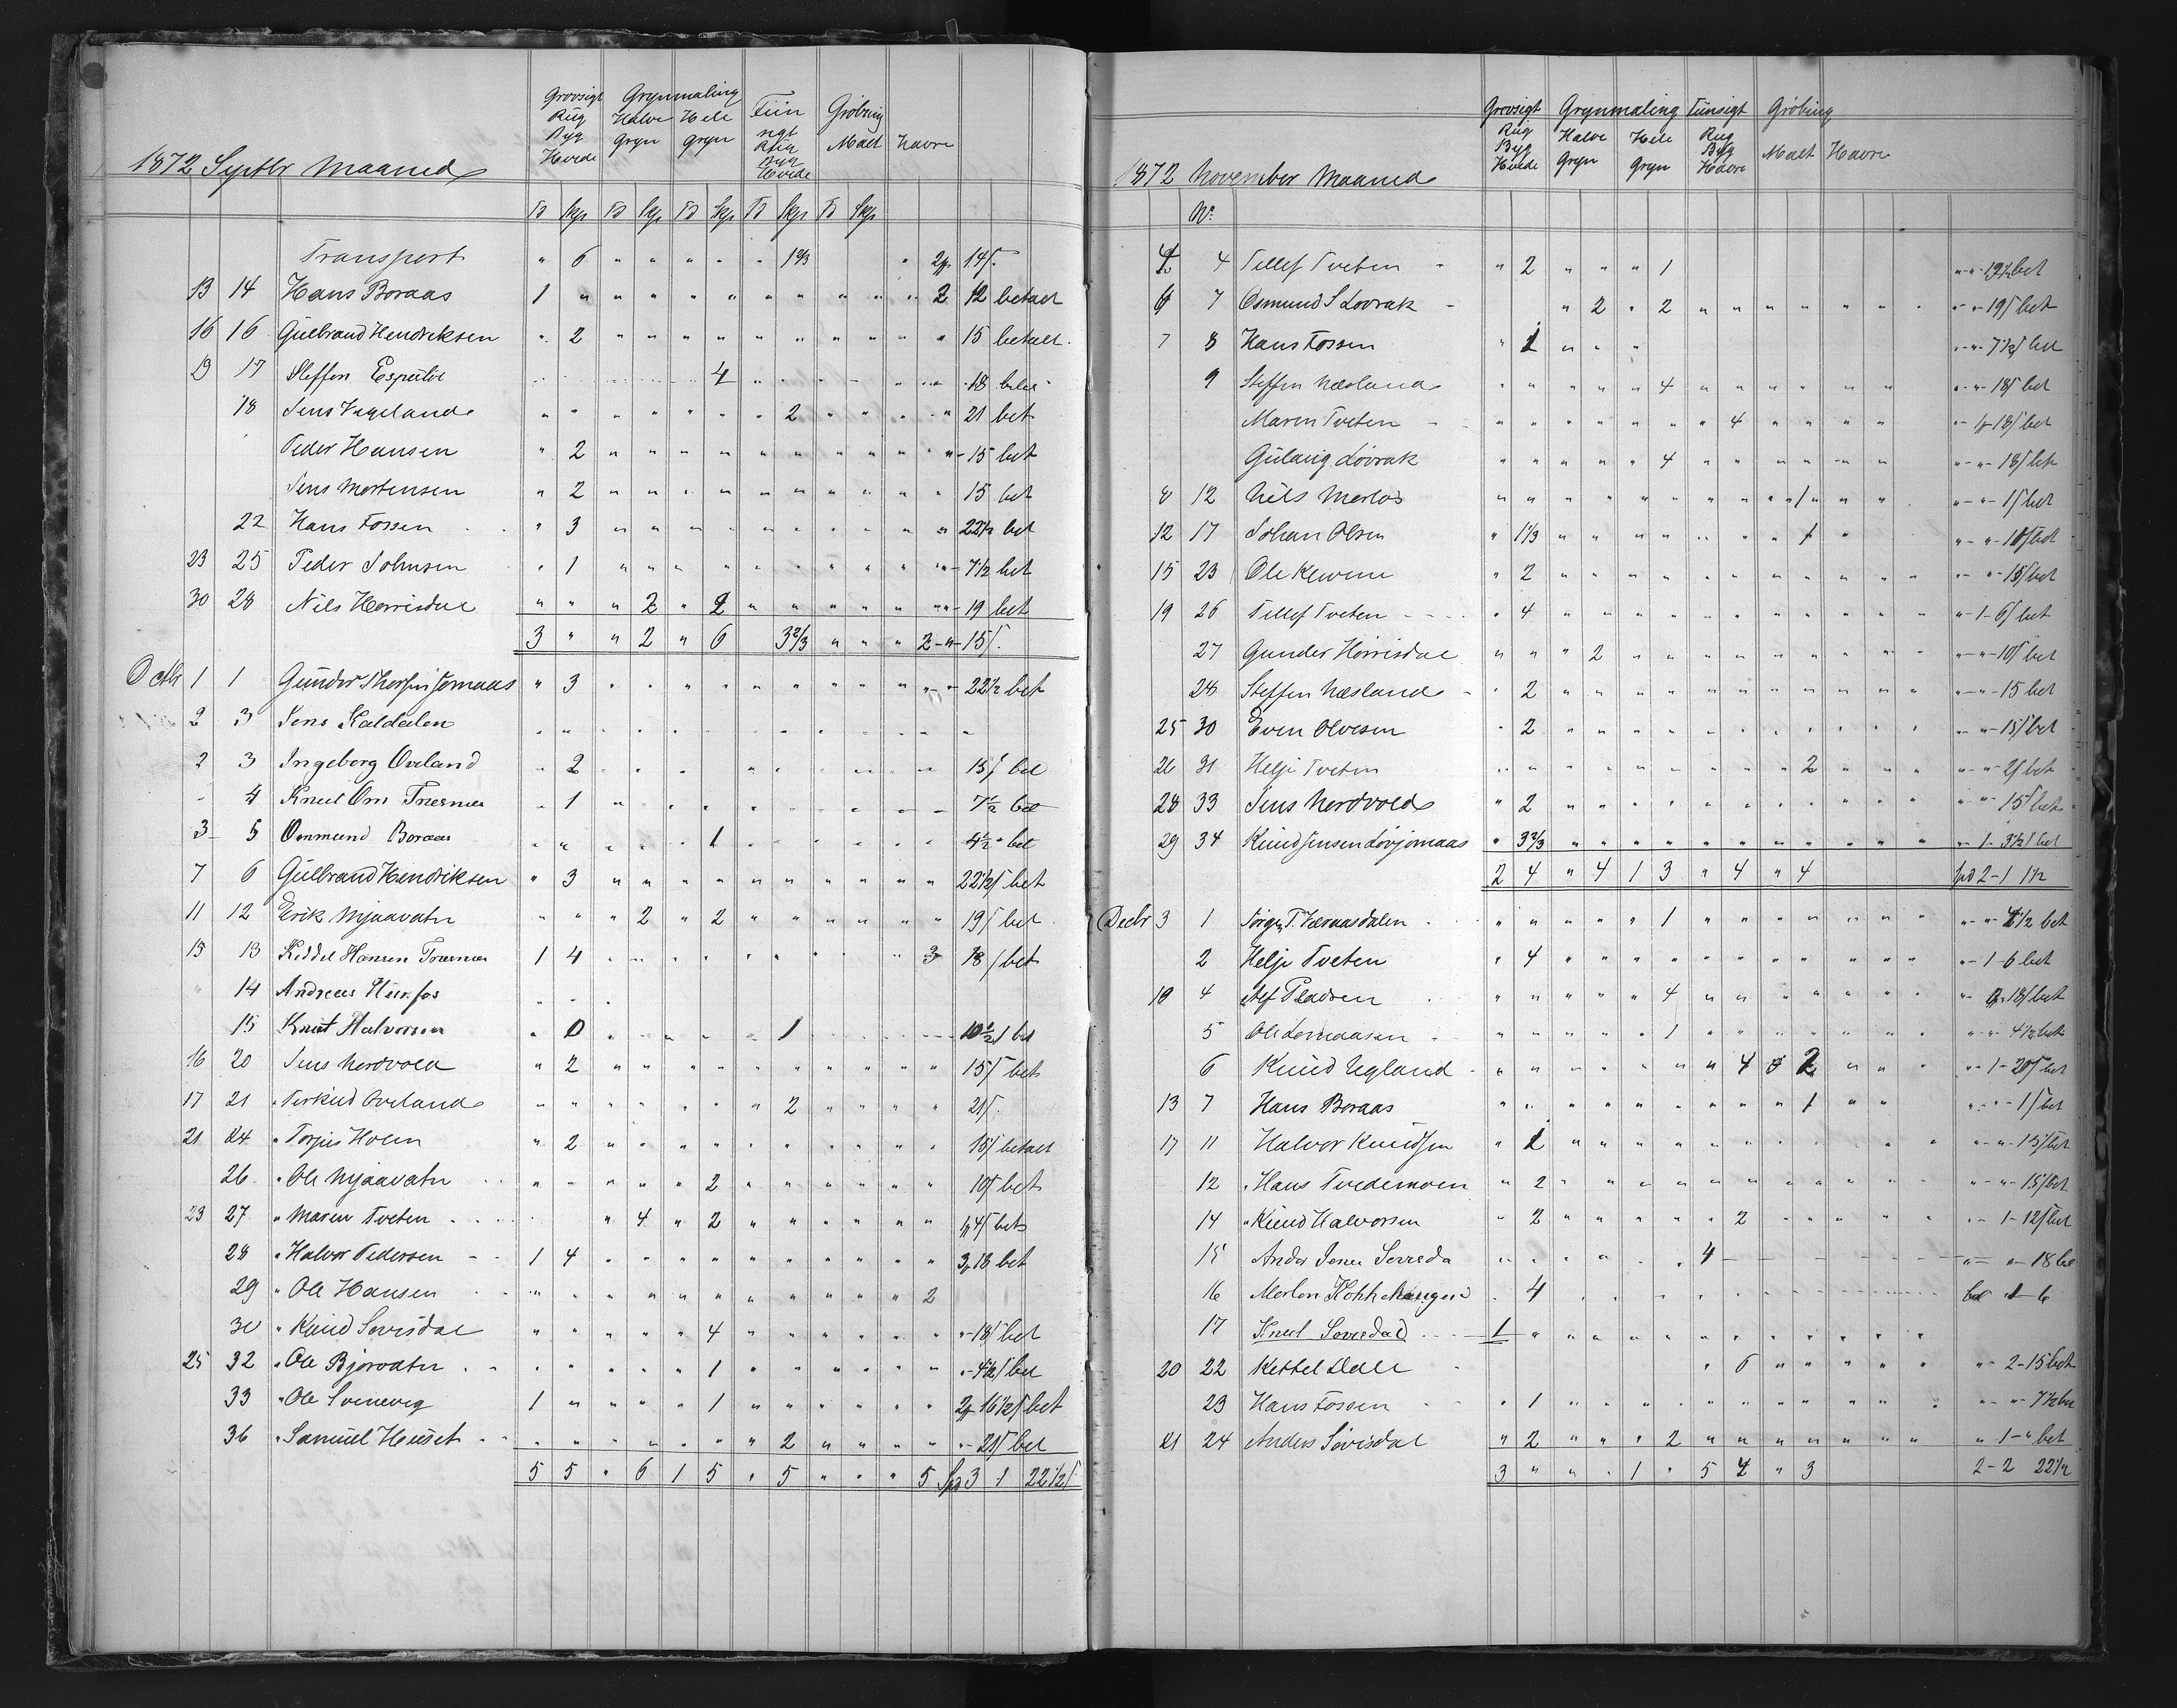 1872 Septbr Maaned
Grovsigt Rug Byg Hvede
Grynmaling Halve Gryn Hele gryn
Fiin sigt Rug Byg Hvede
Gröbing Malt Havre
Td Skp Td Skp Td Skp Td Skp Td Skp
Transport " 6 " " " " " 1 2/3 " 2 14/.
13 14 Hans Boraas 1 " " " " " " " " " " 2 12 betalt
16 16 Gulbrand Hendriksen " 2 " " " " " " " " " " 15 betalt
19 17 Steffen 4 " " 18 betal
18 Jens Vegeland " " " " " " " 2 " " " " 21 bet
Peder Hansen " 2 " " " " " " " " " " 15 bet
Jens Mortensen " 2 " " " " " " " " " " 15 bet
22 Hans Fossen " 3 " " " " " " " " " " 22 1/2 bet
23 25 Peder Johnsen " 1 " " " " " " " " " " 7 1/2 bet
30 28 Nils Herrisdal " " " 2 " 2 " " " " " " 19 bet
3 " " 2 " 6 3 2/3 " " " 2 " 15/.
Octbr 1 1 Gunder " 3 " " " " " " " " " " 22 1/2 bet
2 3 Jens Kaldalen
2 3 Ingeborg Overland " 2 " " " " " " " " " 15/ bet
" 4 Knut Om Tresnes " 1 " " " " " " " " 7 1/2 bet
3 5 Ommund Boraas " " " " " 1 " " " " " 4 1/2 bet
7 6 Gulbrand Hendriksen " 3 " " " " " " " " " " 22 1/2/ bet
11 12 Erik Mjaavatn " " " 2 " 2 " " " " " " 19/ bet
15 13 Keddel Hansen Tresnes 1 4 " " " " " " " 3 18/ bet
" 14 Andreas
15 Knut Halvorsen " 0 " " " " 1 10 1/2/ bet
16 20 Jens Nordvold " 2 " " " " " " " " " " 15/ bet
17 21 " Terkild Overland " " " " " " " 2 " " " " 21/.
21 24 " Torjus Holen " 2 " " " " " " " " " " 15/ betalt
26 " Ole Mjaavatn " " " " " 2 " " " " " " 10/ bet
23 27 " Maren Tveten " 4 " 2 " " " " " " 1 4/ bet
28 " Halvor Pedersen 1 4 " " " " " " " " " " 3 18 bet
29 " Ole Hansen " " " " " " " " " " " 2
30 " Knud Sevrisdal " " " " " 4 " " " " " " " 18/ bet
25 32 " Ole Bjorvatn " " " " " 1 " " " " " " " 4 1/2/ bet
33 " Ole Svenevig 1 " " " " 1 " " " " " " 2 16 1/2/ bet
36 " Samuel Heüset " " " " " " " 2 " " " " " 21/ bet
5 5 " 6 1 5 " 5 " " " 5 Spd 3 1 22 1/2/
1872 November Maaned
Grovsigt Rug Byg Hvede
Grynmaling Halve Gryn Hele Gryn
Fiinsigt Rug Byg Havre
Gröbing Malt Havre
No
4 Tellef Tveten " 2 " " " 1 bet
6 7 Osmund S Lövrak " 2 " 2 " " " " " " " " 19/ bet
7 8 Hans Fossen " 1 " " " " " 7 1/2/ bet
9 Steffen Næsland " " " " " 4 " " " " " " " 18/ bet
Maren Tveten " " " " " " " 4 " " " " " 1 18/ bet
Gulaug Lövrak " " " " " 4 " " " " " " " 18/ bet
8 12 Nils Merlos " " " " " " " " " 1 " " " " 1/ bet
12 17 Johan Olsen " 1 1/3 " " " " " " " 1 " " " bet
15 23 Ole Kleveme " 2 " " " " " " " " " " " " 15/ bet
19 26 Tellef Tveten " 4 " " " " " " " " " " " 1 6/ bet
27 Gunder Hörrisdal " " " 2 " " " " " " " " " " 10/ bet
28 Steffen Næsland " 2 " " " " " " " " " " " " 15 bet
25 30 Even Olvesen " 2 " " " " " " " " " " " " 15/ bet
26 31 Helje Tveten " " " " " " " " " 2 " " " " 2/ bet
28 33 Jens Nordvold " 2 " " " " " " " " " " " " 15/ bet
29 34 Knud Jensen Lövjomaas " 3 2/3 " " " " " " " " " " " 1 3 1/2/ bet
2 4 " 4 1 3 " 4 " 4 Spd 2 - 1 1 1/2
Decbr 3 1 Jörgen T. Væraasdalen " " " " " 1 " " " " " " " " 4 1/2 bet
2 Helje Tveten " 4 " " " " " " " " " " " 1 - 6 bet
10 4 Alef Pladsen " " " " " 4 " " " " " " " 18/ bet
5 Ole Lomaasen " " " " " 1 " " " " " " " " 4 1/2 bet
6 Knud Ugland " " " " " " " 4 " 2 " " " 1 - 20/ bet
13 7 Hans Boraas " " " " " " " " " 1 " " " " 1/ bet
17 11 Halvor Knudsen " 2 " " " " " " " " " " " " 15/ bet
12 " Hans Tvedemoen " 2 " " " " " " " " " " " " 15/ bet
14 " Knud Halvorsen " 2 " " " " " 2 " " " " " 1 - 12/ bet
15 Anders Jensen " " " " " 4 " " 18 bet
16 Morten " 4 " " " " bet 1 6
17 Knut Sevrisdal 1 " " " " " " " " " " "
20 22 Kettel Dale " 6 " " " " " 2 - 15 bet
23 Hans Fossen " 1 " " " " " " " " " " " " 7 1/2 bet
21 24 Anders Sevrisdal " 2 " " " 2 " " " " " " " 1 - " bet
3 " " " 1 " 5 4 " 3 2 - 2 22 1/2